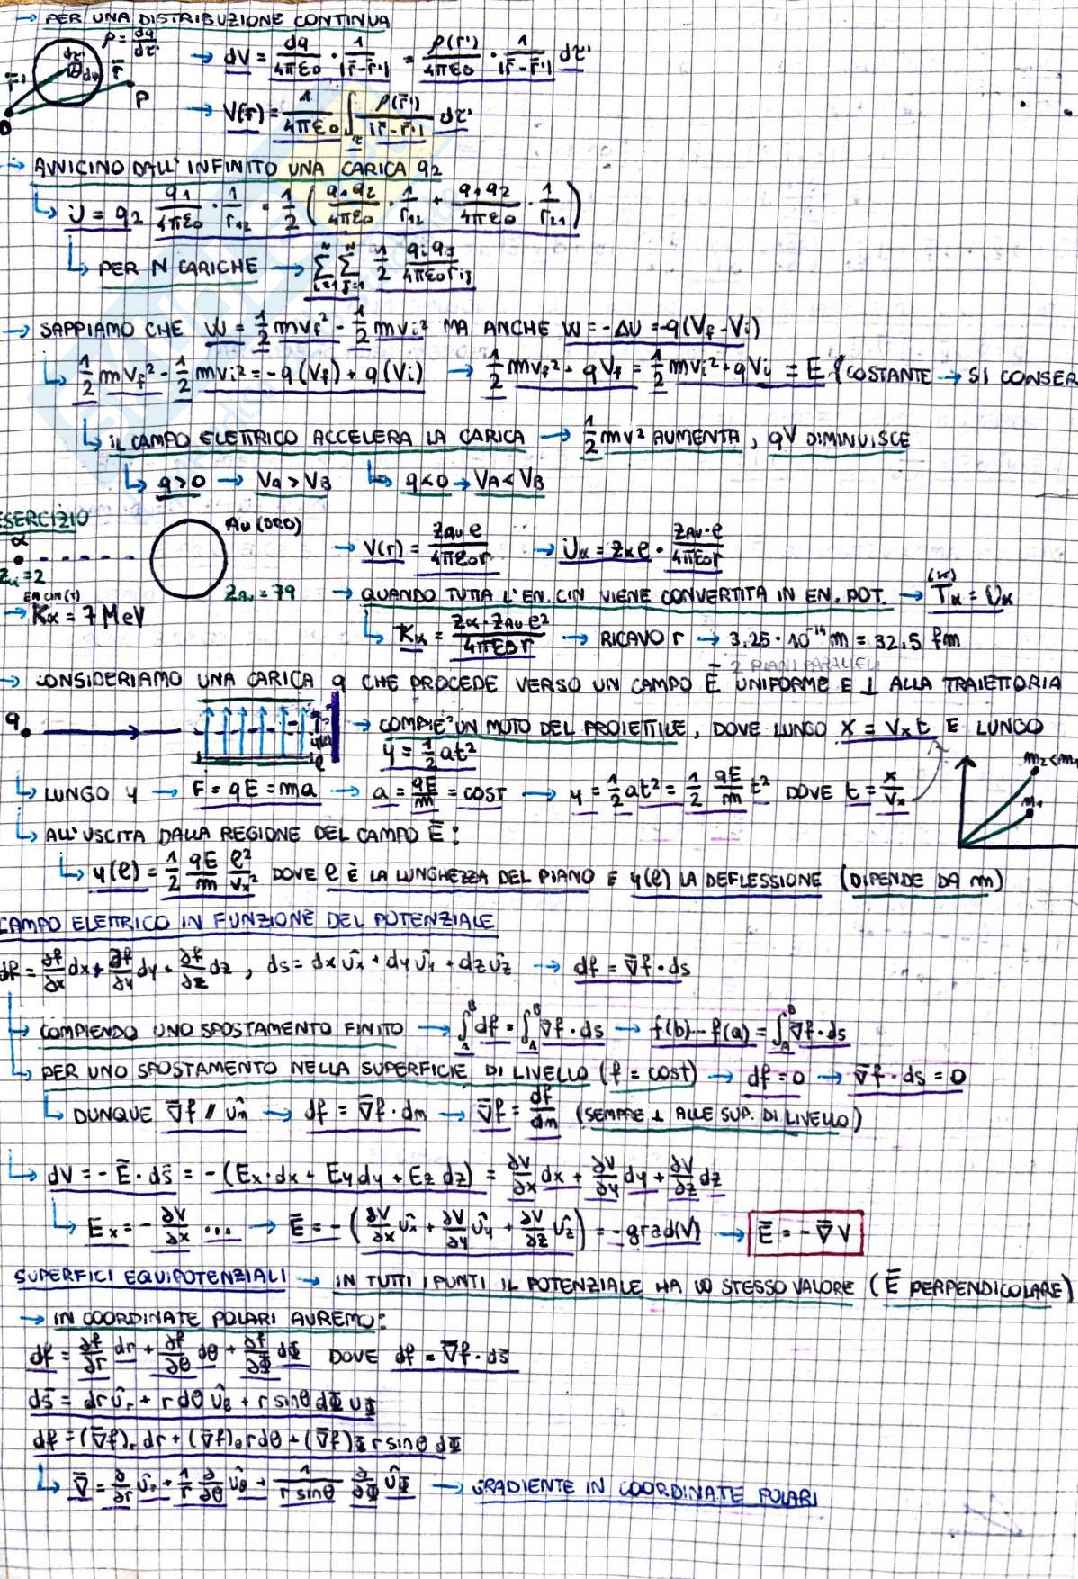 → PER UNA DISTRIBUZIONE CONTINUA
ρ = dq/dτ' → dV = dq/4πε0 · 1/|r̄-r̄'| = ρ(r')/4πε0 · 1/|r̄-r̄'| dτ'
dτ' dq r̄' r̄ P O
→ V(r̄) = 1/4πε0 ∫τ ρ(r̄')/|r̄-r̄'| dτ'
→ AVVICINO DALL'INFINITO UNA CARICA q2
↳ U = q2 q1/4πε0 · 1/r12 = 1/2 ( q1q2/4πε0 · 1/r12 + q1q2/4πε0 · 1/r21 )
↳ PER N CARICHE → Σi=1^N Σj=1^N 1/2 qiqj/4πε0rij
→ SAPPIAMO CHE W = 1/2 mvf² - 1/2 mvi² MA ANCHE W = -ΔU = -q(Vf-Vi)
↳ 1/2 mvf² - 1/2 mvi² = -q(Vf) + q(Vi) → 1/2 mvf² + qVf = 1/2 mvi² + qVi = E COSTANTE → SI CONSER
↳ IL CAMPO ELETTRICO ACCELERA LA CARICA → 1/2 mv² AUMENTA, qV DIMINUISCE
↳ q>0 → Va > VB ↳ q<0 → VA < VB
ESERCIZIO
α Au (ORO) → V(r) = ZAu e/4πε0r → Uα = Zα e · ZAu·e/4πε0r
Zα = 2 ZAu = 79 → QUANDO TUTTA L'EN. CIN VIENE CONVERTITA IN EN. POT. → Tα = Uα
(K)
EN CIN (T)
→ Kα = 7 MeV ↳ Kα = Zα·ZAu e²/4πε0r → RICAVO r → 3.25·10⁻¹⁴ m = 32.5 fm
= 2 PIANI PARALLELI
→ CONSIDERIAMO UNA CARICA q CHE PROCEDE VERSO UN CAMPO Ē UNIFORME E ⊥ ALLA TRAIETTORIA
q → COMPIE UN MOTO DEL PROIETTILE, DOVE LUNGO X = Vx t E LUNGO
y = 1/2 at²
ℓ
m2<m1
m1
↳ LUNGO y → F = qE = ma → a = qE/m = COST → y = 1/2 at² = 1/2 qE/m t² DOVE t = x/Vx
↳ ALL'USCITA DALLA REGIONE DEL CAMPO Ē:
↳ y(ℓ) = 1/2 qE/m ℓ²/Vx² DOVE ℓ È LA LUNGHEZZA DEL PIANO E y(ℓ) LA DEFLESSIONE (DIPENDE DA m)
CAMPO ELETTRICO IN FUNZIONE DEL POTENZIALE
df = ∂f/∂x dx + ∂f/∂y dy + ∂f/∂z dz, ds = dx ûx + dy ûy + dz ûz → df = ∇̄f·ds
↳ COMPIENDO UNO SPOSTAMENTO FINITO → ∫A^B df = ∫A^B ∇f·ds → f(b)-f(a) = ∫A^B ∇f·ds
↳ PER UNO SPOSTAMENTO NELLA SUPERFICIE DI LIVELLO (f = COST) → df = 0 → ∇̄f·ds = 0
↳ DUNQUE ∇̄f // ûn → df = ∇̄f·dn → ∇̄f = df/dn (SEMPRE ⊥ ALLE SUP. DI LIVELLO)
↳ dV = -Ē·ds̄ = -(Ex·dx + Eydy + Ez dz) = ∂V/∂x dx + ∂V/∂y dy + ∂V/∂z dz
↳ Ex = -∂V/∂x ... → Ē = -( ∂V/∂x ûx + ∂V/∂y ûy + ∂V/∂z ûz ) = -grad(V) → Ē = -∇̄V
SUPERFICI EQUIPOTENZIALI → IN TUTTI I PUNTI IL POTENZIALE HA LO STESSO VALORE (Ē PERPENDICOLARE)
→ IN COORDINATE POLARI AVREMO:
df = ∂f/∂r dr + ∂f/∂θ dθ + ∂f/∂Φ dΦ DOVE df = ∇̄f·ds̄
ds̄ = dr ûr + r dθ ûθ + r sinθ dΦ ûΦ
df = (∇̄f)r dr + (∇̄f)θ r dθ + (∇̄f)Φ r sinθ dΦ
↳ ∇̄ = ∂/∂r ûr + 1/r ∂/∂θ ûθ + 1/r sinθ ∂/∂Φ ûΦ → GRADIENTE IN COORDINATE POLARI